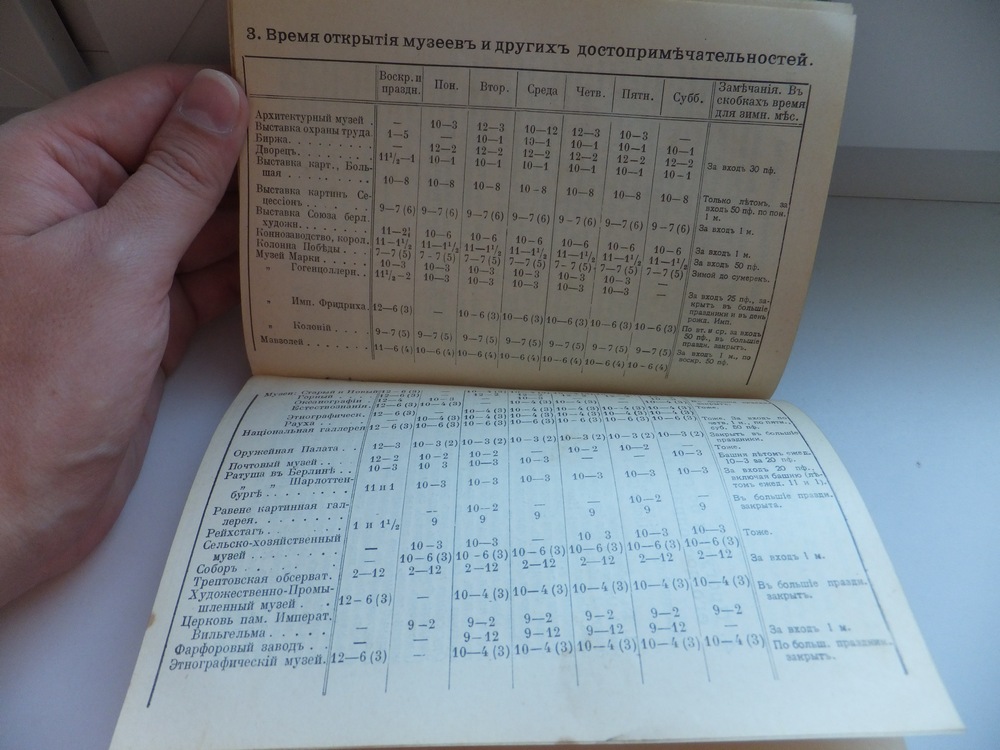 3. Время открытія музеевъ и другихъ достопримѣчательностей.
Воскр. и праздн. Пон. Втор. Среда Четв. Пятн. Субб. Замѣчанія. Въ скобкахъ время для зимн. мѣс.
Архитектурный музей . — 10—3 12—3 10—12 12—3 10—3 —
Выставка охраны труда. 1—5 — 10—1 10—1 10—1
Биржа. 12—2 12—2 12—2 12—2 12—2 12—2 За входъ 30 пф.
Дворецъ. 11½—1 10—1 10—1 10—1 10—1 10—1 10—1
Выставка карт., Боль-
шая 10—8 10—8 10—8 10—8 10—8 10—8 10—8 Только лѣтомъ, за
входъ 50 пф. по пон.
1 м.
Выставка картинъ Се-
цессіонъ 9—7 (6) 9—7 (6) 9—7 (6) 9—7 (6) 9—7 (6) 9—7 (6) 9—7 (6) За входъ 1 м.
Выставка Союза берл.
художн. 10—6 10—6 10—6 10—6 10—6 10—6 За входъ 1 м.
Коннозаводство, корол. 11—1½ 11—1½ 11—1½ 11—1½ 11—1½ 11—1½ 11—1½ За входъ 50 пф.
Колонна Побѣды 7—7 (5) 7—7 (5) 7—7 (5) 7—7 (5) 7—7 (5) 7—7 (5) 7—7 (5) Зимой до сумерекъ.
Музей Марки 10—3 10—3 10—3 10—3 10—3 10—3 —
„ Гогенцоллерн. 11½—2 10—3 10—3 10—3 10—3 10—3 — За входъ 25 пф., за-
крытъ въ большіе
праздники и въ день
рожд. Имп.
„ Имп. Фридриха. 12—6 (3) — 10—6 (3) 10—6 (3) 10—6 (3) 10—6 (3) 10—6 (3) По вт. и ср. за входъ
50 пф., въ большіе
праздн. закрытъ.
„ Колоній 9—7 (5) 9—7 (5) 9—7 (5) 9—7 (5) 9—7 (5) 9—7 (5) 9—7 (5) За входъ 1 м., по
воскр. 50 пф.
Мавзолей 11—6 (4) 10—6 (4) 10—6 (4) 10—6 (4) 10—6 (4) 10—6 (4) 10—6 (4)
Музеи: Старый и Новый 12—6 (3)
Горный
Океанографіи 12—4 10—3
Естествознанія. 12—6 (3) 10—4 (3) Тоже.
Этнографическ. 12—6 (3) — 10—4 (3) 10—4 (3) 10—4 (3) 10—4 (3) 10—4 (3)
Рауха
Національная галлерея 12—6 (3) 10—6 (3) 10—6 (3) 10—6 (3) 10—6 (3) 10—6 (3) 10—6 (3) Тоже. За входъ по
четв. 1 м., по пятн.,
суб. 50 пф.
Оружейная Палата 12—3 10—3 (2) 10—3 (2) 10—3 (2) 10—3 (2) 10—3 (2) 10—3 (2) Закрыть въ большіе
праздники.
Почтовый музей 12—2 10—2 10—2 — 10—2 10—2 — Тоже.
Ратуша въ Берлинѣ 10—3 10 3 10—3 10—3 10—3 10—3 10—3 Башня лѣтомъ ежед.
10—3 за 20 пф.
„ „ Шарлоттен-
бургѣ 11 и 1 10—3 10—3 10—3 10—3 10—3 10—3 За входъ 20 пф.,
включая башню (лѣ-
томъ ежед. 11 и 1).
Равене картинная гал-
лерея. — — 10—2 — — 10—2 — Въ большіе праздн.
закрыта.
Рейхстагъ 1 и 1½ 9 9 9 9 9 9
Сельско-хозяйственный
музей — 10—3 10—3 — 10 3 10—3 10—3 Тоже.
Соборъ — 10—6 (3) 10—6 (3) 10—6 (3) 10—6 (3) 10—6 (3) 10—6 (3)
Трептовская обсерват. 2—12 2—12 2—12 2—12 2—12 2—12 2—12 За входъ 1 м.
Художественно-Промы-
шленный музей 12—6 (3) — 10—4 (3) 10—4 (3) 10—4 (3) 10—4 (3) 10—4 (3) Въ большіе праздн.
закрытъ.
Церковь пам. Императ.
Вильгельма — 9—2 9—2 9—2 9—2 9—2 9—2
Фарфоровый заводъ — — 9—12 9—12 9—12 9—12 — За входъ 1 м.
Этнографическій музей. 12—6 (3) — 10—4 (3) 10—4 (3) 10—4 (3) 10—4 (3) 10—4 (3) По больш. праздник.
закрытъ.